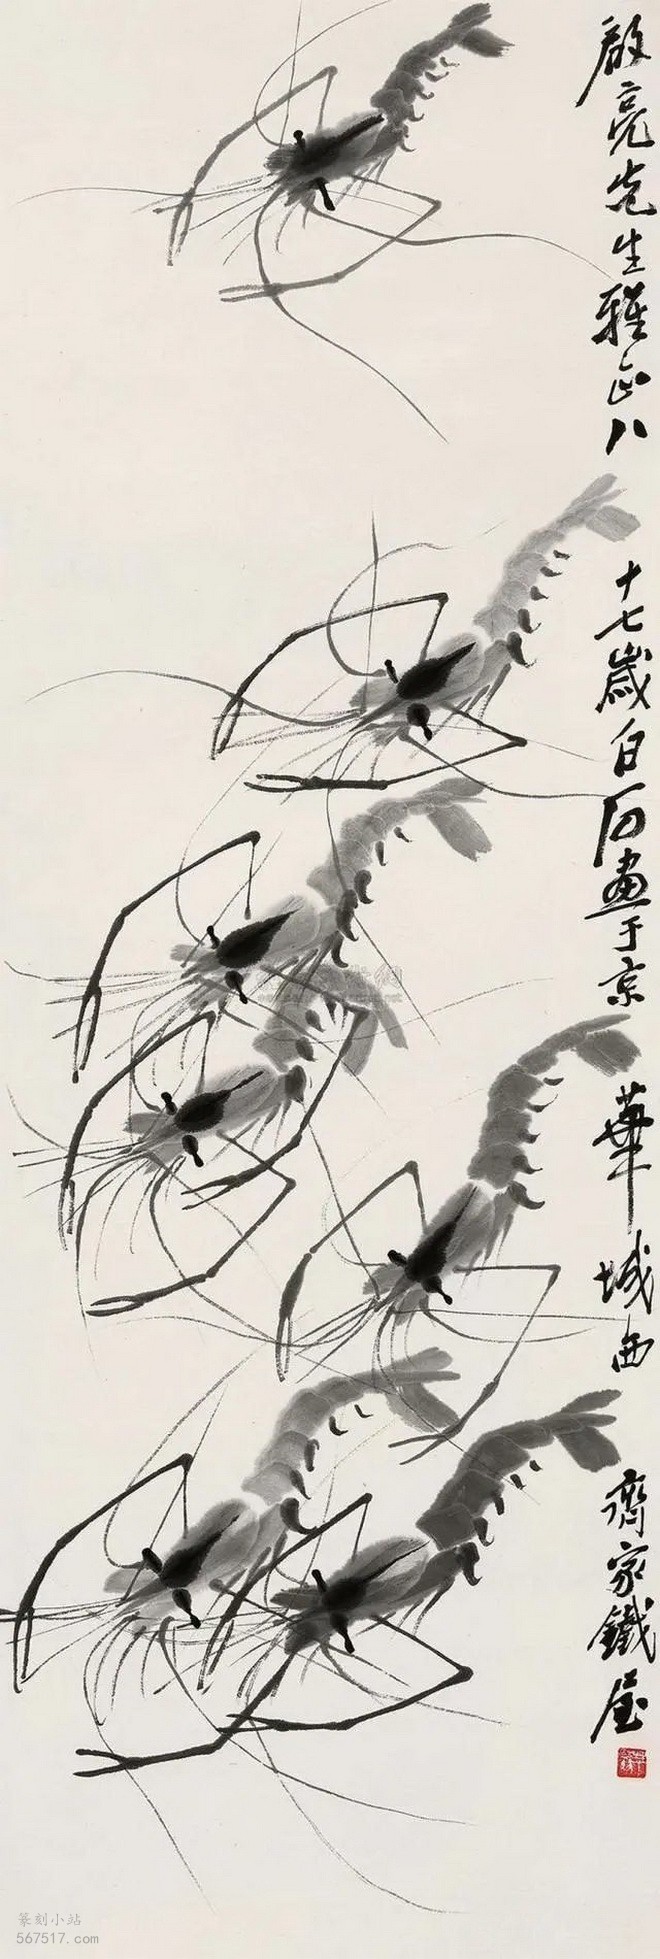 啟亮先生雅正八十七歲白石畫于京華城西齊家鐵屋
篆刻小站
567517.com